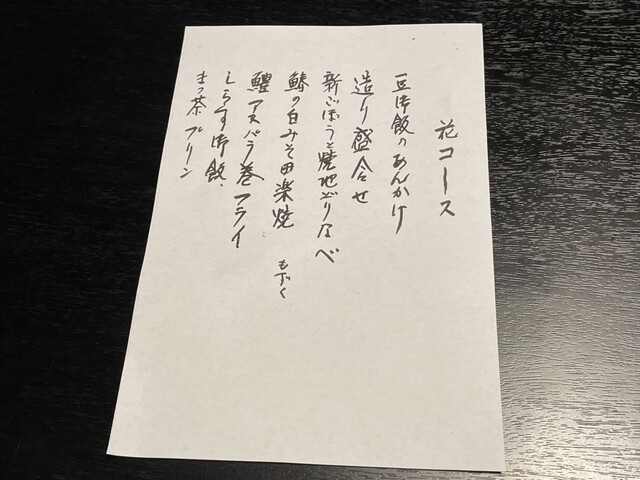 花コース
豆御飯のあんかけ
造り盛合せ
新ごぼうと焼地どりなべ
鰆の白みそ田楽焼
もずく
鱧アスパラ巻フライ
しらす御飯.
まっ茶プリン